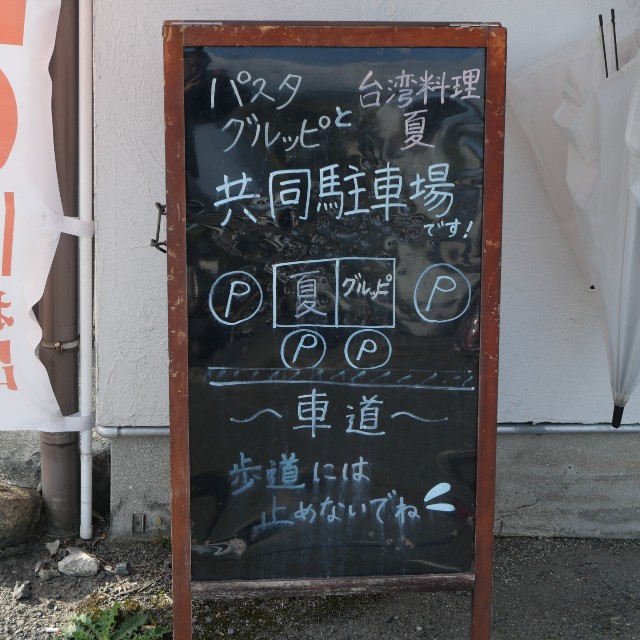 パスタ 台湾料理
グルッピと 夏
共同駐車場
です!
P 夏 グルッピ P
P P
〜車道〜
歩道には
止めないでね